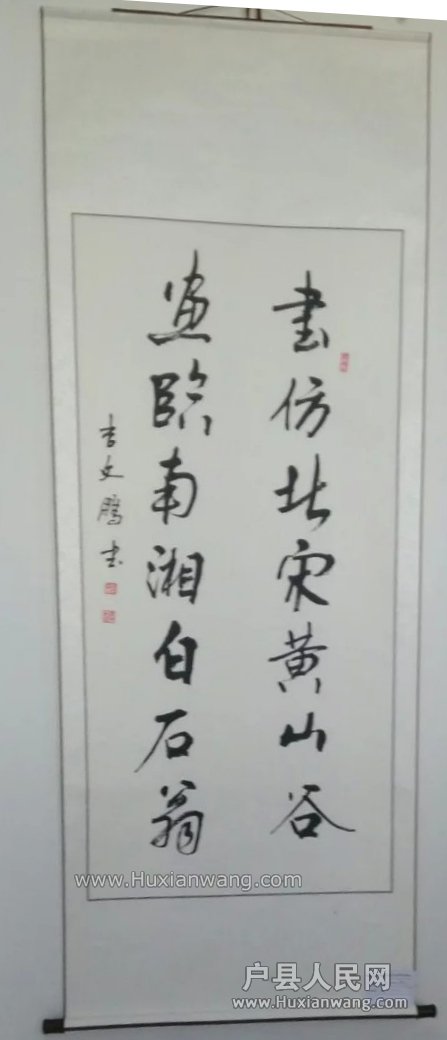 书仿北宋黄山谷
画臨南湘白石翁
李文鹏书
www.Huxianwang.com
户县人民网
www.Huxianwang.com